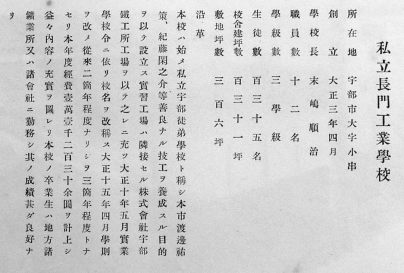 私立長門工業學校
所在地　宇部市大字小串
創立　大正三年四月
學校長　末嶋順治
職員數　十二名
學級數　三學級
生徒數　百三十五名
校舍建坪數　百三十一坪
敷地坪數　三百六坪
沿革
本校ハ始メ私立宇部徒弟學校ト稱シ本市渡邊祐
策、紀藤閑之介等善良ナル技工ヲ養成スル目的
ヲ以テ設立ス實習工場ハ隣接セル株式會社宇部
鐵工所工場ヲ以テ之レニ充ツ大正十年五月實業
學校令ニ依リ校名ヲ改稱ス大正十五年四月學則
ヲ改メ從來二箇年程度ナリシヲ三箇年程度トナ
セリ本年度經費壹萬壹千二百三十余圓ヲ計上シ
益々內容ノ充實ヲ圖レリ本校ノ卒業生ハ地方諸
鑛業所又ハ諸會社ニ勤務シ其ノ成績甚ダ良好ナ
リ